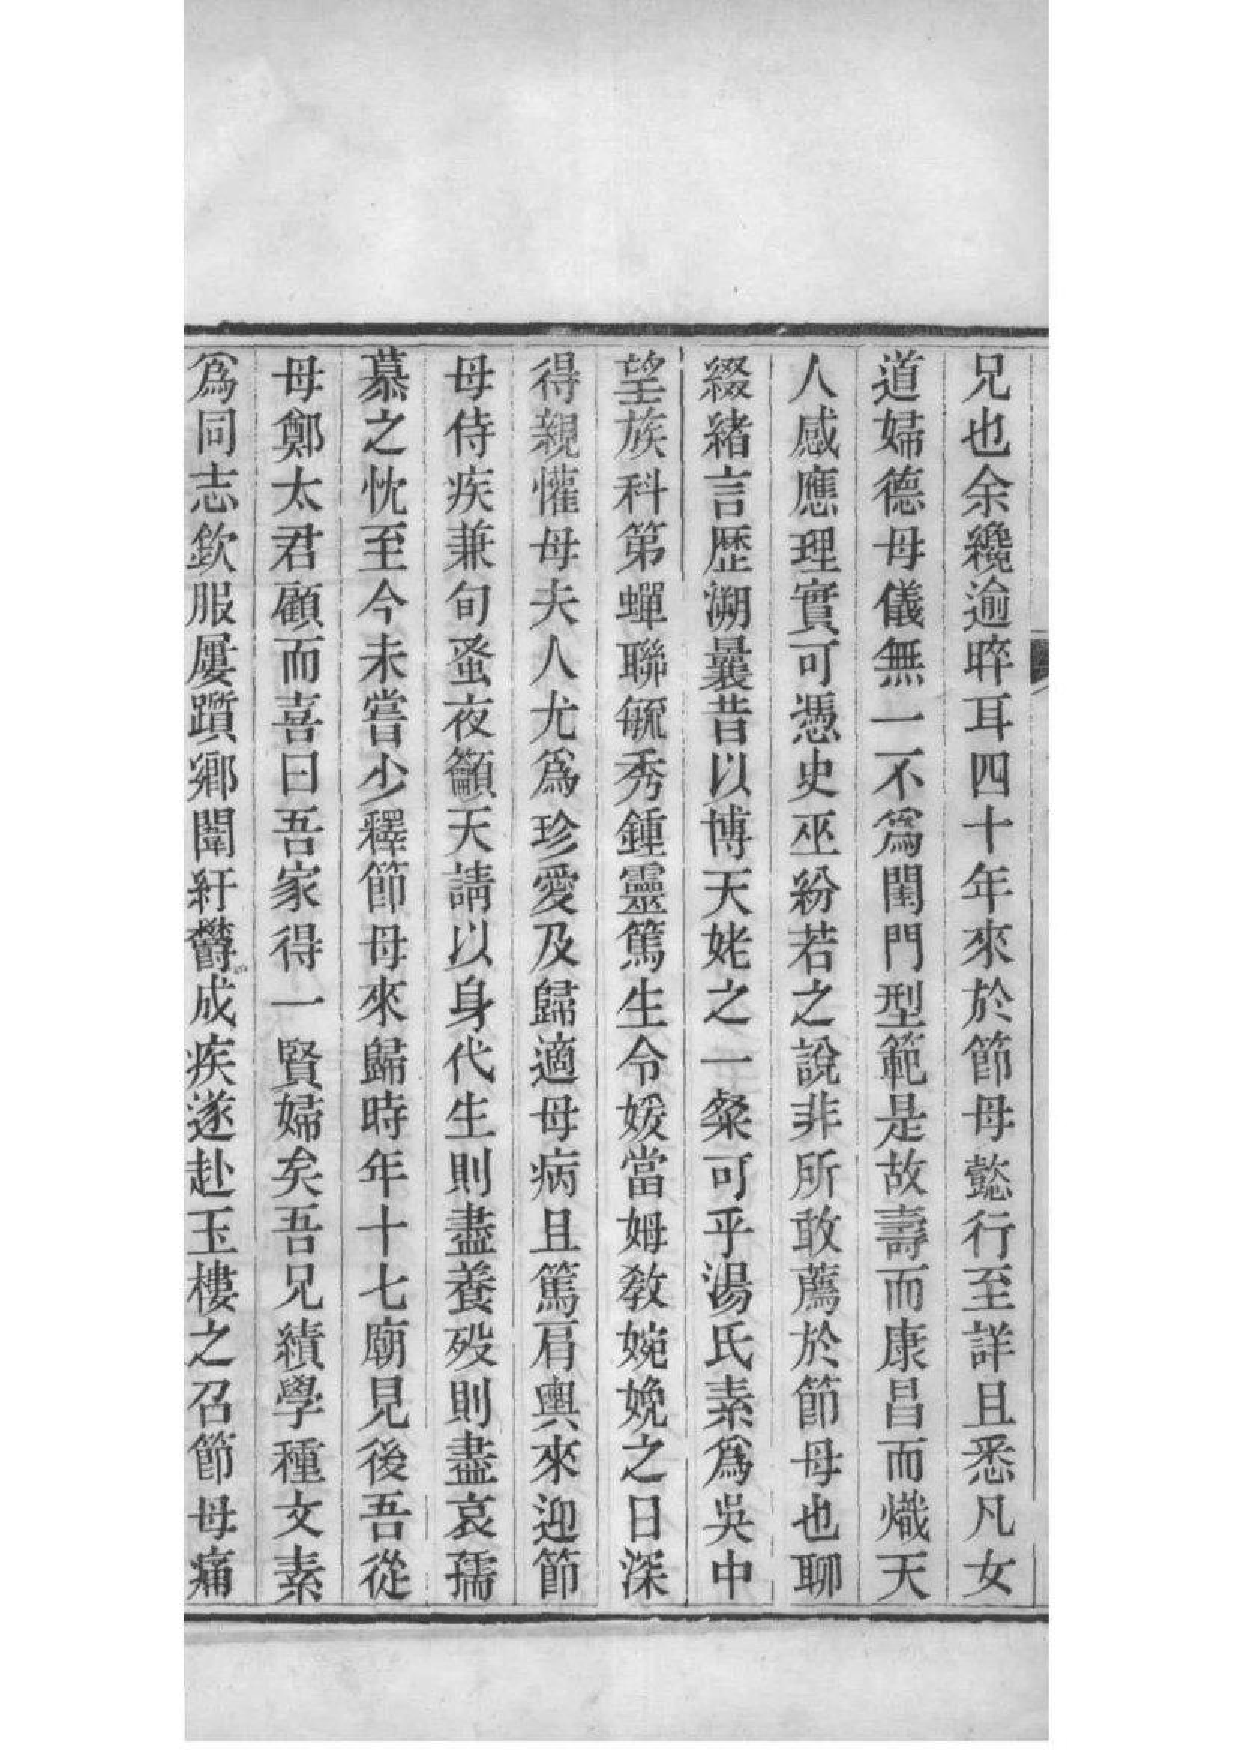 兄也余纔逾晬耳四十年來於節母懿行至詳且悉凡女
道婦德母儀無一不爲閨門型範是故壽而康昌而熾天
人感應理實可憑史巫紛若之說非所敢薦於節母也聊
綴緒言歴溯曩昔以博天姥之一粲可乎湯氏素爲吳中
望族科第蟬聯毓秀鍾靈篤生令媛當姆教婉娩之日深
得親懽母夫人尤爲珍愛及歸適母病且篤肩輿來迎節
母侍疾兼旬蚤夜籲天請以身代生則盡養歿則盡哀孺
慕之忱至今未嘗少釋節母來歸時年十七廟見後吾從
母鄭太君顧而喜曰吾家得一賢婦矣吾兄績學種文素
爲同志欽服屢躓鄉闈紆鬱成疾遂赴玉樓之召節母痛